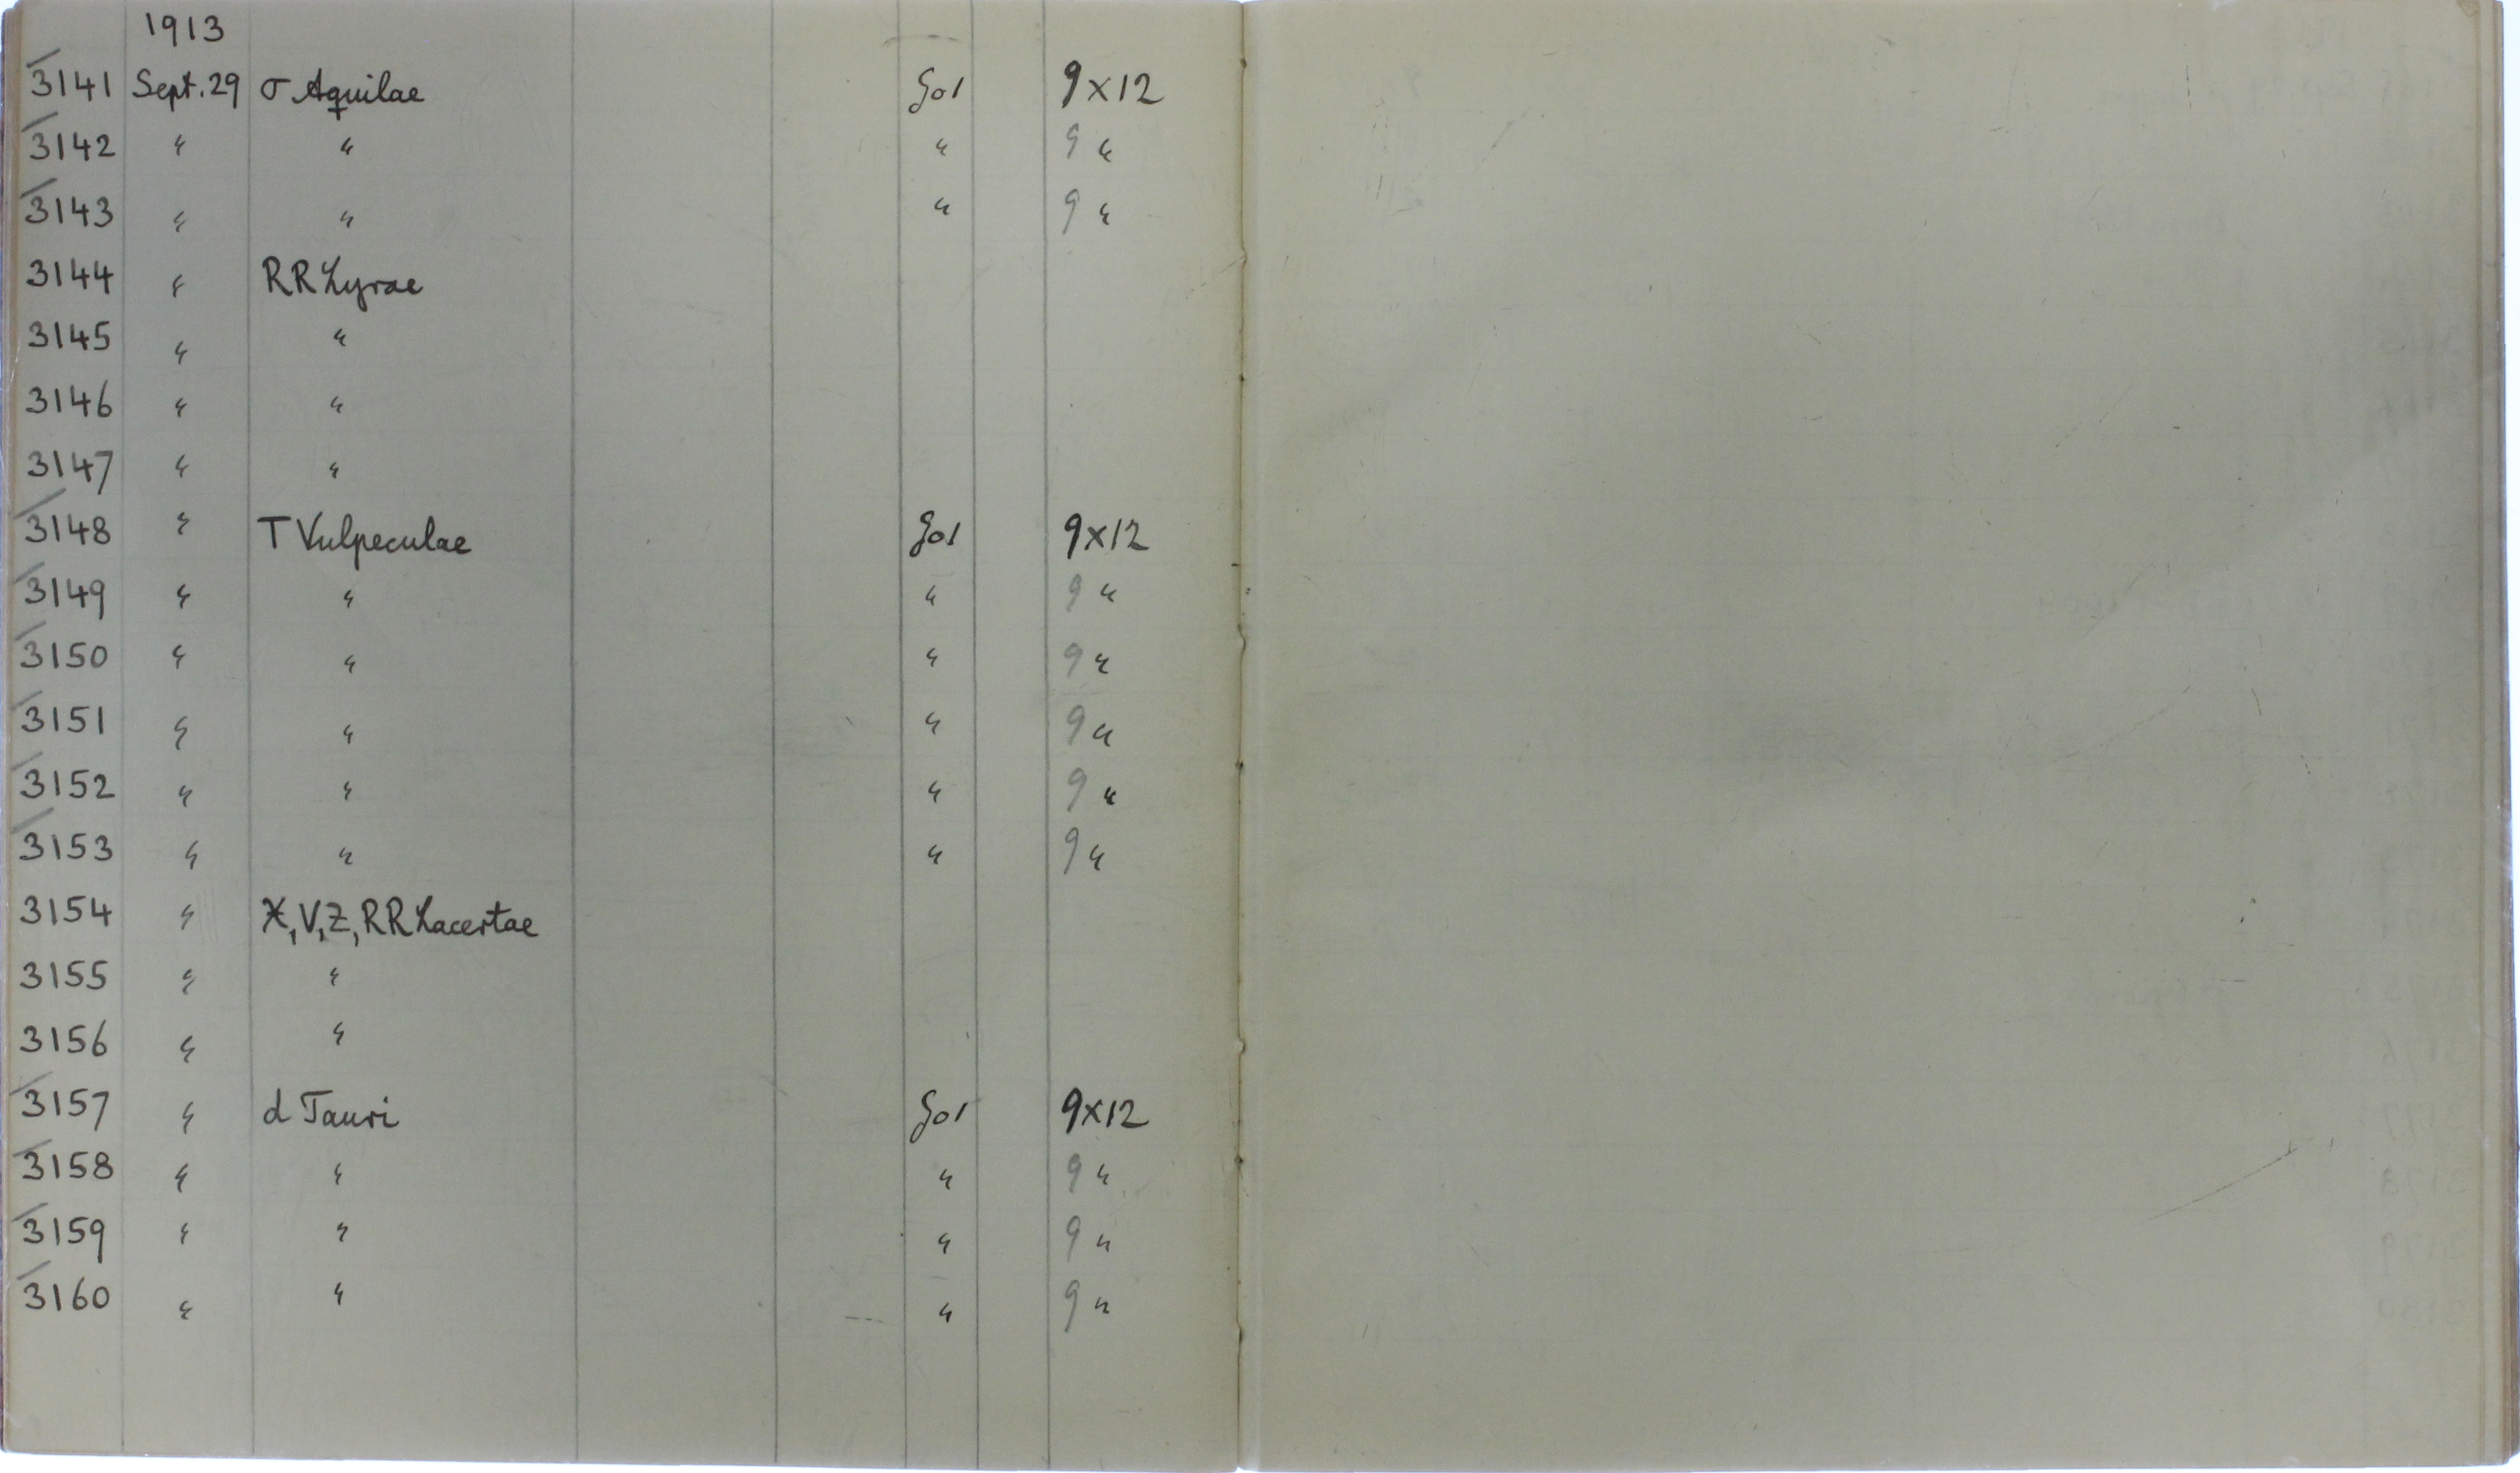 1913
3141 Sept. 29 σ Aquilae Go1 9x12
3142 " " " 9 "
3143 " " " 9 "
3144 " RR Lyrae
3145 " "
3146 " "
3147 " "
3148 " T Vulpeculae Go1 9x12
3149 " " " 9 "
3150 " " " 9 "
3151 " " " 9 "
3152 " " " 9 "
3153 " " " 9 "
3154 " X, V, Z, RR Lacertae
3155 " "
3156 " "
3157 " d Tauri Go1 9x12
3158 " " " 9 "
3159 " " " 9 "
3160 " " " 9 "